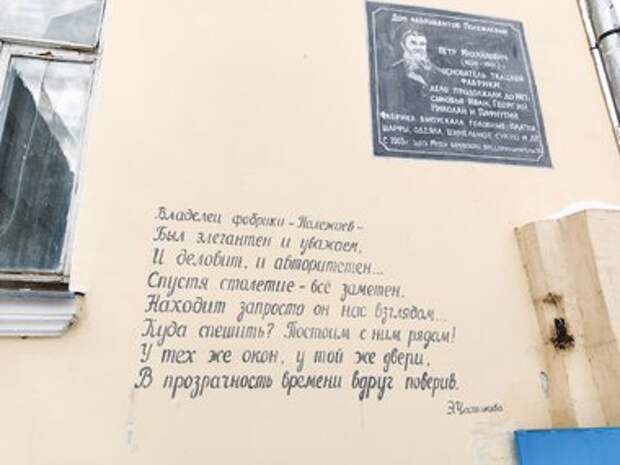 Дом фабрикантов Полежаевых
Петр Михайлович
основатель ткацкой
фабрики.
дело продолжали до 1917г.
сыновья Иван, Георгий,
Николай и Пафнутий
Фабрика выпускала головные платки,
шарфы, одеяла, шинельное сукно и др.
С 2003г. здесь Музей боровского предпринимательства
Владелец фабрики - Полежаев -
Был элегантен и уважаем,
И деловит, и авторитетен...
Спустя столетие - всё заметен.
Находит запросто он нас взглядом...
Куда спешить? Постоим с ним рядом!
У тех же окон, у той же двери,
В прозрачность времени вдруг поверив.
Э.Частикова